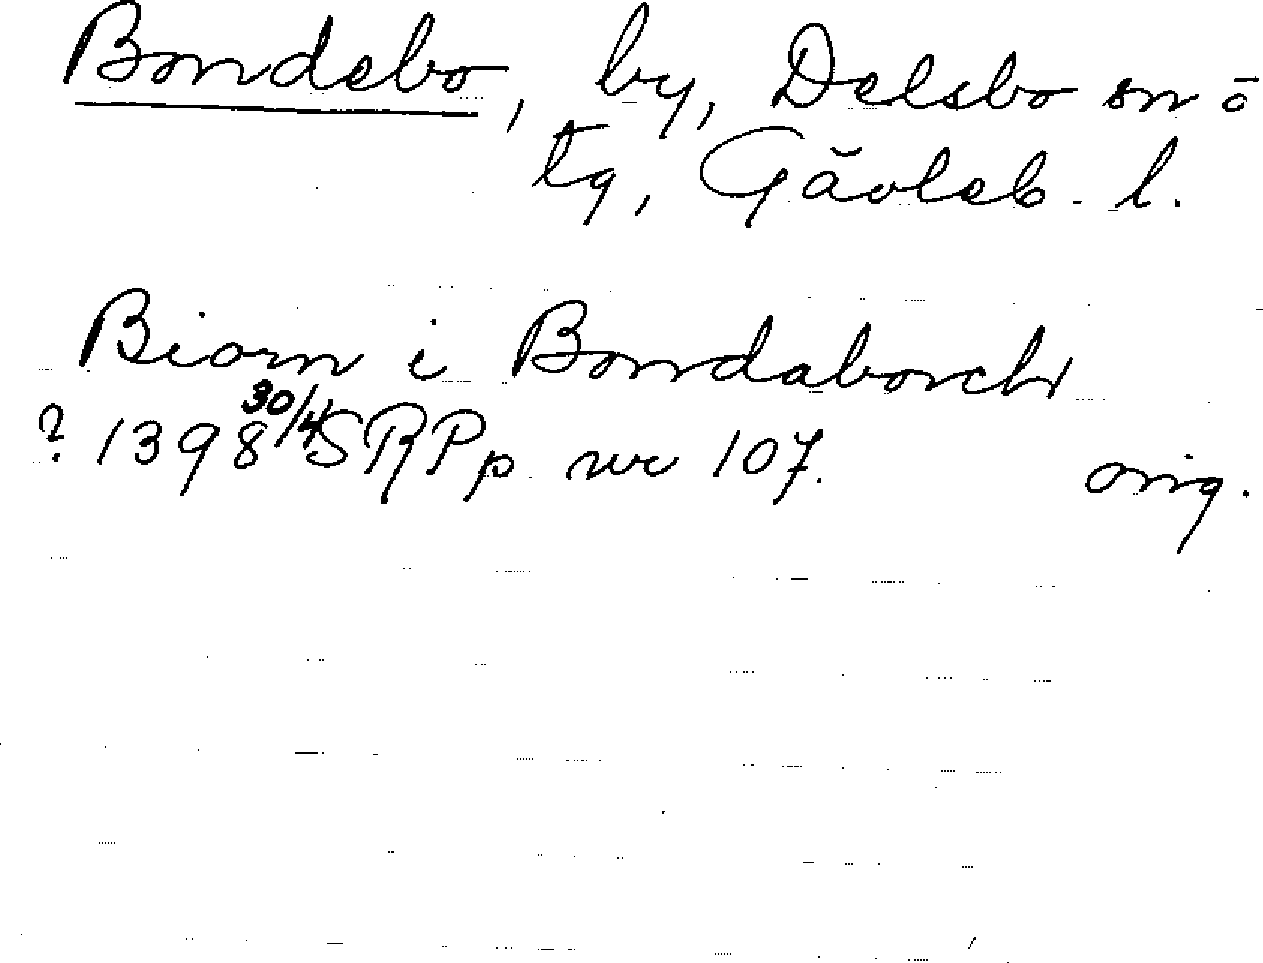 Bondebo, by, Delsbo sn ō
tg, Gävleb. l.
Biorn i Bondaboneh
? 1398 30/4 SRPp nr 107. orig.